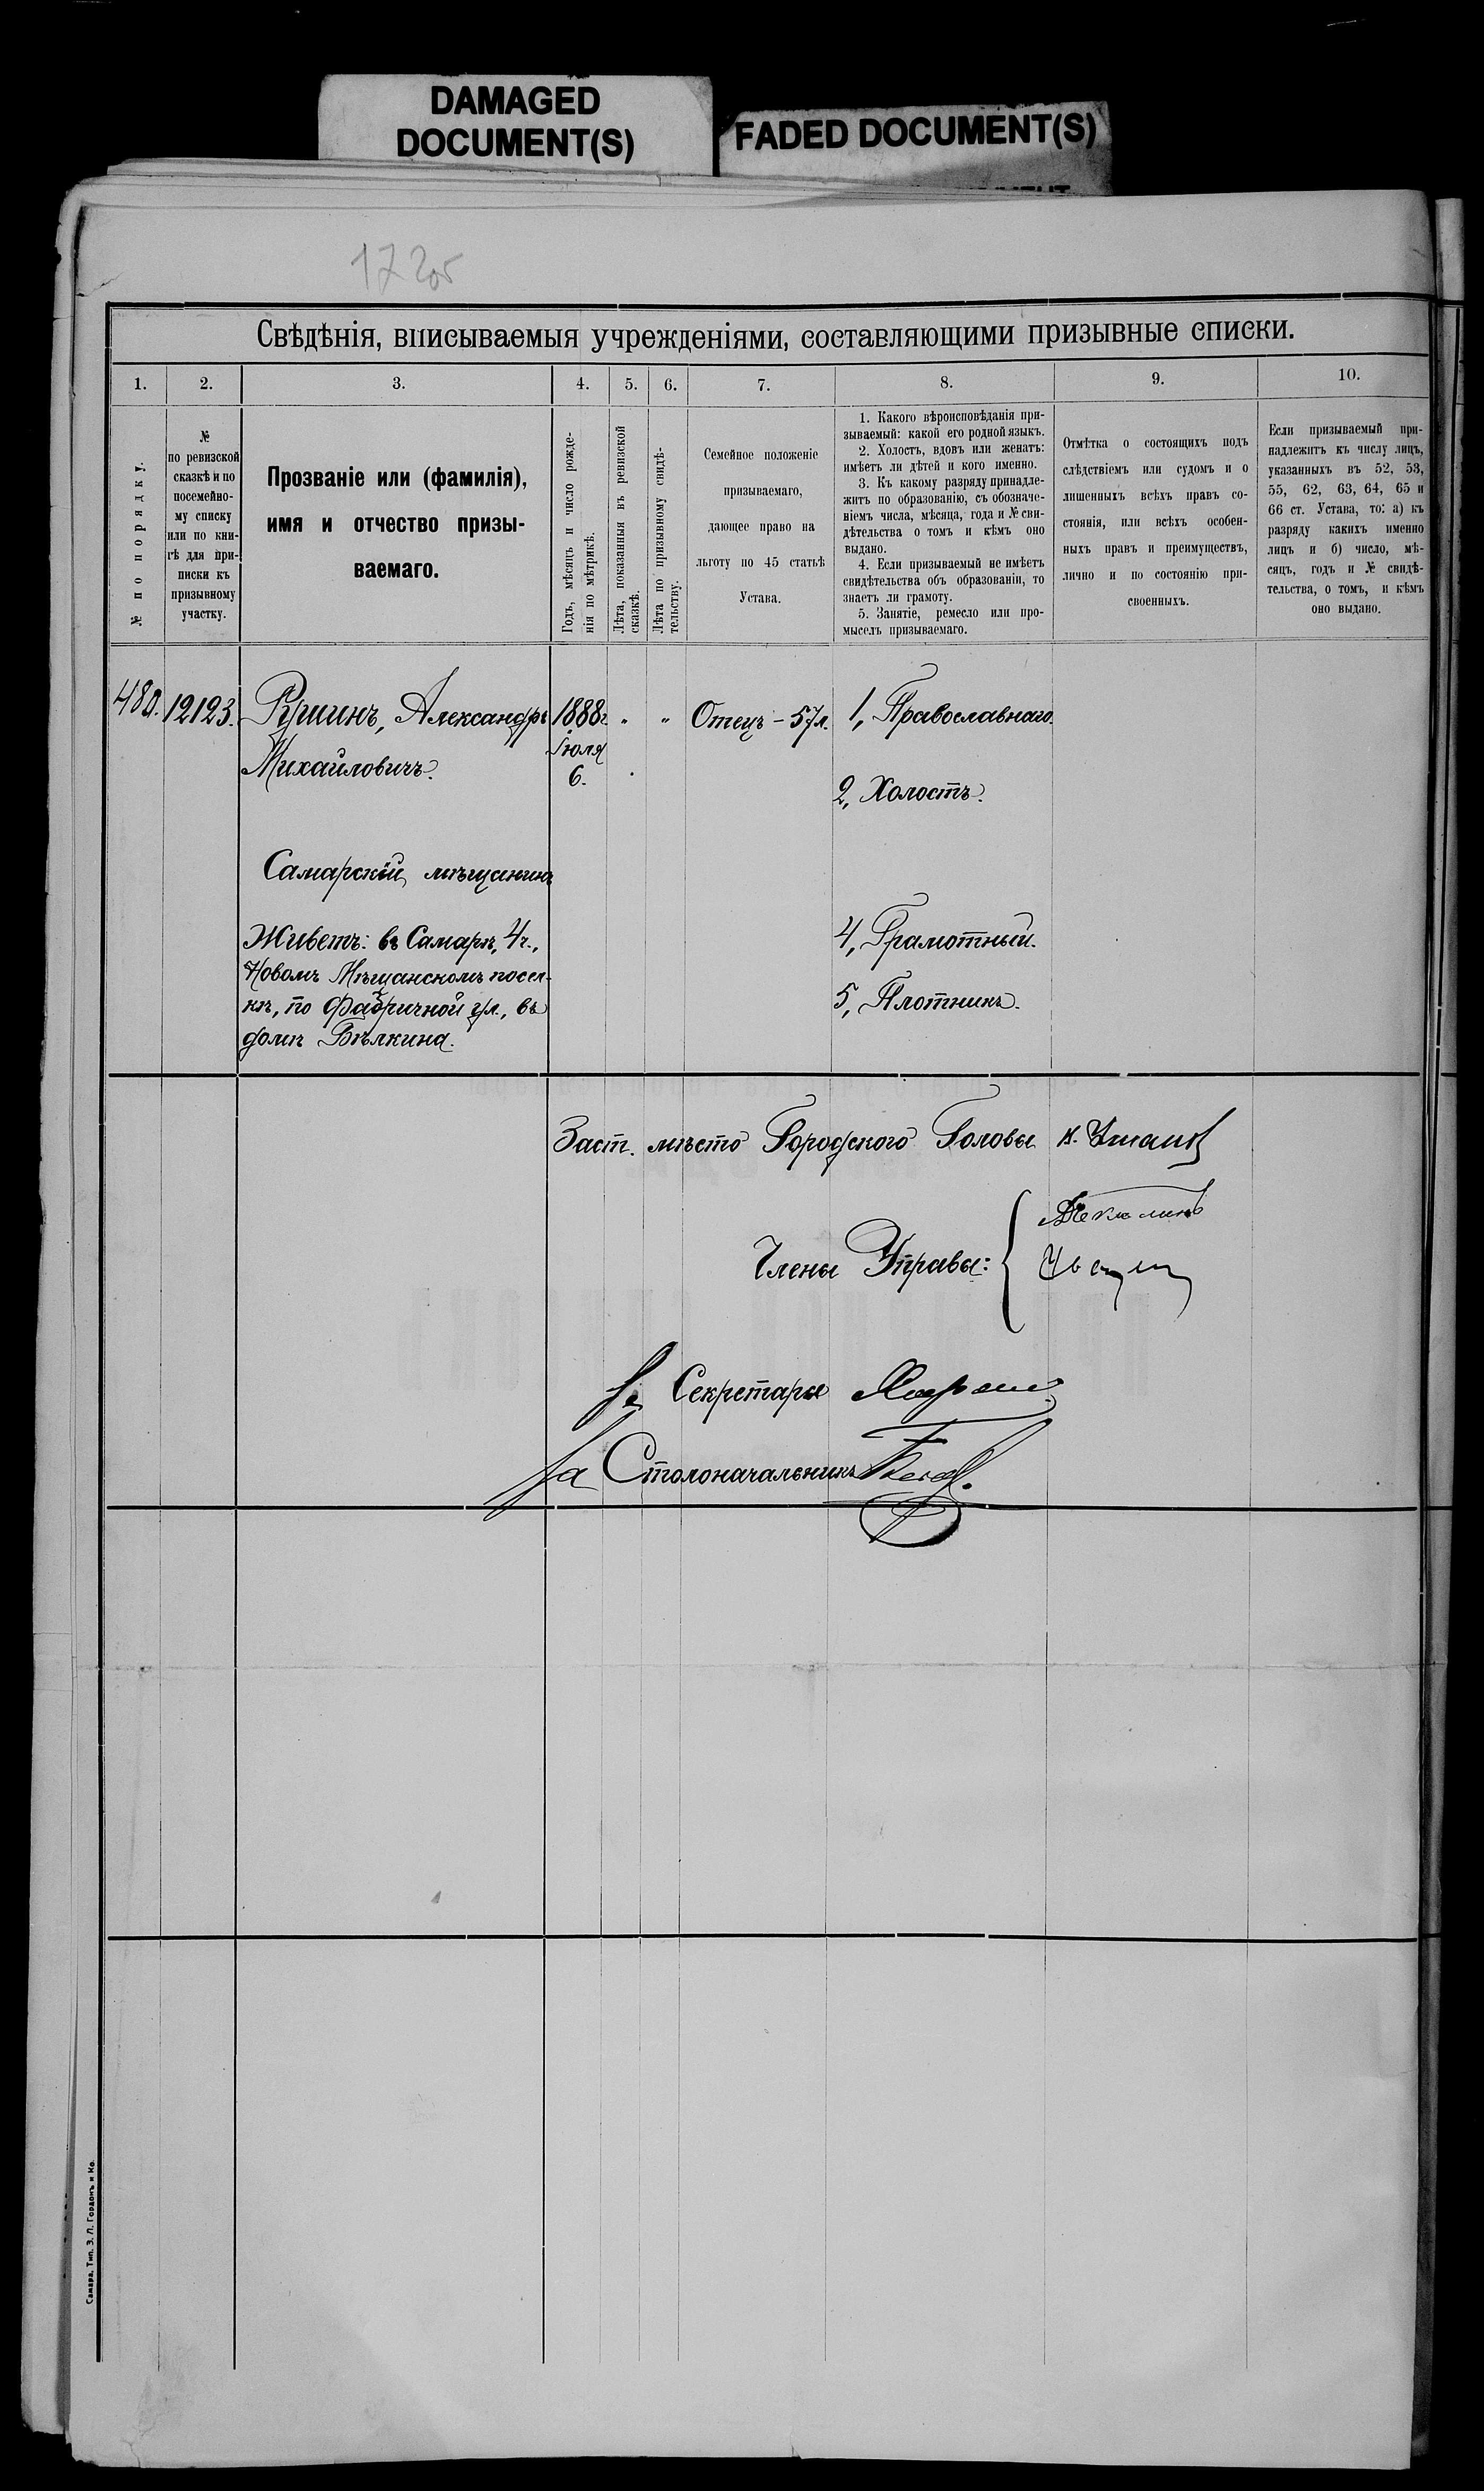 DAMAGED
DOCUMENT(S)
FADED DOCUMENT(S)
Свѣдѣнія, вписываемыя учрежденіями, составляющими призывные списки.
1.
2.
3.
4.
5.
6.
7.
8.
9.
10.
№ по порядку.
№
по ревизской
сказкѣ и по
посемейно-
му списку
или по кни-
гѣ для при-
писки къ
призывному
участку.
Прозваніе или (фамилія),
имя и отчество призы-
ваемаго.
Годъ, мѣсяцъ и число рожде-
нія по метрикѣ.
Лѣта, показанныя въ ревизской
сказкѣ.
Лѣта по призывному свидѣ-
тельству.
Семейное положеніе
призываемаго,
дающее право на
льготу по 45 статьѣ
Устава.
1. Какого вѣроисповѣданія при-
зываемый: какой его родной языкъ.
2. Холостъ, вдовъ или женатъ:
имѣетъ ли дѣтей и кого именно.
3. Къ какому разряду принадле-
житъ по образованію, съ обозначе-
ніемъ числа, мѣсяца, года и № сви-
дѣтельства о томъ и кѣмъ оно
выдано.
4. Если призываемый не имѣетъ
свидѣтельства объ образованіи, то
знаетъ ли грамоту.
5. Занятіе, ремесло или про-
мыселъ призываемаго.
Отмѣтка о состоящихъ подъ
слѣдствіемъ или судомъ и о
лишенныхъ всѣхъ правъ со-
стоянія, или всѣхъ особен-
ныхъ правъ и преимуществъ,
лично и по состоянію при-
своенныхъ.
Если призываемый при-
надлежитъ къ числу лицъ,
указанныхъ въ 52, 53,
55, 62, 63, 64, 65 и
66 ст. Устава, то: а) къ
разряду какихъ именно
лицъ и б) число, мѣ-
сяцъ, годъ и № свидѣ-
тельства, о томъ, и кѣмъ
оно выдано.
480. 12123. Александръ 1888г. " " Отецъ - 57 л. 1, Православнаго.
Михайловичъ. Іюля
6.
2, Холостъ.
Самарскій мѣщанинъ
Живетъ: въ Самарѣ, 4 ч., 4, Грамотный.
Новомъ Мѣщанскомъ посел-
кѣ, по Фабричной ул., въ 5, Плотникъ.
домѣ Бѣлкина.
Заст. мѣсто Городского Головы
Члены Управы:
Секретаря
За Столоначальника
Самара, Тип. З. Л. Гордонъ и Ко.